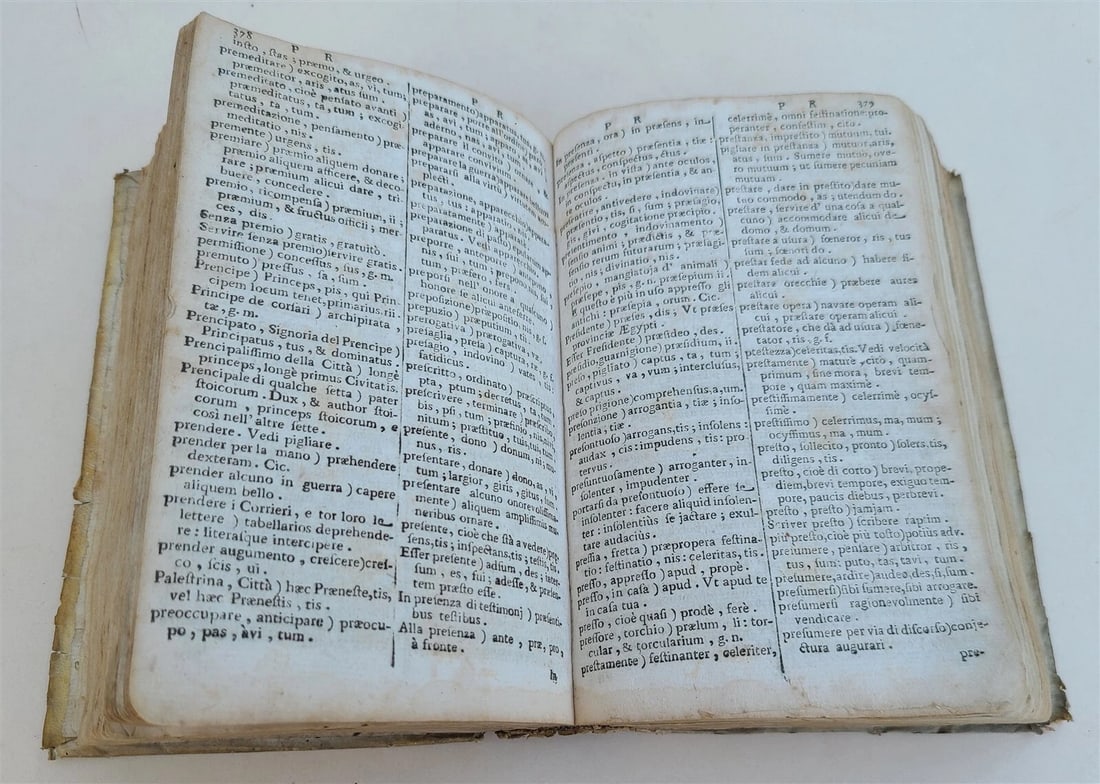 378
P R
insto, stas; præmo, & urgeo.
premeditare) excogito, as, vi, tum;
præmeditor, aris, atus sum.
premeditato, cioè pensato avanti)
præmeditatus, ta, tum; excogi-
tatus, ta, tum.
premeditazione, pensamento) præ-
meditatio, nis.
premente) urgens, tis.
premiare) præmio aliquem donare;
præmio aliquem afficere, & deco-
rare; præmium alicui dare, tri-
buere, concedere.
premio, ricompensa) præmium, ii;
præmium, & fructus officii; mer-
ces, dis.
Senza premio) gratis, gratuitò.
Servire senza premio) servire gratis.
permissione) concessus, sus, g. m.
premuto) pressus, sa, sum.
Prencipe) Princeps, pis, qui Prin-
cipem locum tenet, primarius. rii.
Principe de corsari) archipirata,
tæ, g. m.
Prencipato, Signoria del Prencipe)
Principatus, tus, & dominatus.
Prencipalissimo della Città) longè
princeps, longè primus Civitatis.
Principale di qualche setta) pater
stoicorum. Dux, & author stoi-
corum, princeps stoicorum, e
così nell'altre sette.
prendere. Vedi pigliare.
prender per la mano) præhendere
dexteram. Cic.
prender alcuno in guerra) capere
aliquem bello.
prendere i Corrieri, e tor loro le
lettere) tabellarios deprehende-
re: literasque intercipere.
prender augumento, crescere) cres-
co, scis, ui.
Palestrina, Città) hæc Præneste, tis,
vel hæc Prænestis, tis.
preoccupare, anticipare) præocu-
po, pas, avi, tum.
P R
preparamento) apparatus,
preparare,
as, avi, tum;
aderno,
preparare il convito)
apparare convivium,
preparar la guerra)
prepararsi alla virtù)
plecti.
preparazione, apparecchio)
tus, tus: apparatio,
preparatamente)
preparamento di pasto)
paratus. Vedi apparecchio.
preporre, antepor
nis, sui, tum;
tum, præfero, fers,
preporre nell'onore a qualcuno)
honore se alicui anteferre.
preposizione) præpositio, nis, g. f.
prepuzio) præputium, tii.
prerogativa) prærogativa, væ, g. f.
presaglia, presa) captura, ræ.
presagio, indovino) vates, tis;
fatidicus.
prescritto, ordinato) præscriptus,
pta, ptum; decretus, ta, tum.
prescrivere, terminare) præscribo,
bis, psi, tum; præfinio, nis, ivi,
nitum; præstituo, tuis, tui, tum.
presente, dono) donum, ni; mu-
nus, ris.
presentare, donare) dono, as, vi,
tum; largior, giris, gitus, sum.
presentare alcuno onorevolissima-
mente) aliquem amplissimis mu-
neribus ornare.
presente, cioè che stà a vedere) præ-
sens, tis; inspectans, tis; testis, tis.
Esser presente) adsum, des; inter-
sum, es, fui; adesse, & præsen-
tem præsto esse.
In presenza di testimonj) præsenti-
bus testibus.
Alla presenza) ante, præ, pro,
à fronte.
In
P R
in presenti, ora) in præsens, in-
præsenti.
presenza, aspetto) præsentia, tiæ:
aspectus, conspectus, ctus.
in presenza: in vista) ante oculos,
in conspectu, in præsentia, & an-
te oculos.
presentire, antivedere, indovinare)
præsentio, tis, si, sum; præsagio,
gis, givi, cogitatione præcipio.
presentimento, indovinamento)
præsensio animi; prædictis, & præ-
sensio rerum futurarum; præsagi-
tio, nis; divinatio, nis.
presepio, mangiatoja d' animali)
præsepe, pis, g. n. præsepium ii.
E questo è più in uso appresso gli
antichi: præsepia, orum. Cic.
Presidente) præses, dis; Vt præses
provinciæ Ægypti.
Esser Presidente) præsideo, des.
presidio, guarnigione) præsidium, ii.
preso, pigliato) captus, ta, tum;
captivus, va, vum; interclusus,
& captus.
preso prigione) comprehensus, a, um.
presonzione) arrogantia, tiæ; inso-
lentia, tiæ.
presontuoso) arrogans, tis; insolens:
audax, cis: impudens, tis: pro-
tervus.
presuntuosamente) arroganter, in-
solenter, impudenter.
portarsi da presontuoso) essere in-
insolenter: facere aliquid insolen-
ter: insolentius se jactare; exul-
tare audacius.
pressia, fretta) præpropera festina-
tio: festinatio, nis: celeritas, tis.
presso, appresso) apud, propè.
presso, in casa) apud. Vt apud te
in casa tua.
presso, cioè quasi) prodè, ferè.
pressore, torchio) prælum, li: tor-
cular, & torcularium, g. n.
prestamente) festinanter, celeriter,
P R 379
celerrimè, omni festinatione: pro-
peranter, confestim, cito.
prestanza, imprestito) mutuum, tui.
pigliare in prestanza) mutuor, aris,
atus, sum. Sumere mutuò, ove-
ro mutuum; ut sumere pecuniam
mutuam.
prestare, dare in prestito) dare mu-
tuo commodo, as; utendum do.
prestare, servire d' una cosa a qual-
cuno) accommodare alicui de
domo, & domum.
prestare a usura) fœneror, ris, tus
sum; fœnori do.
prestar fede ad alcuno) habere fi-
dem alicui.
prestare orecchie) præbere aures
alicui.
prestare opera) navare operam ali-
cui, præstare operam alicui.
prestatore, che dà ad usura) fœne-
tator, ris, g. f.
prestezza) celeritas, tis. Vedi velocità
prestamente) maturè, citò, quam-
primum, sine mora, brevi tem-
pore, quam maximè.
prestissimamente) celerrimè, ocys-
simè.
prestissimo) celerrimus, ma, mum;
ocyssimus, ma, mum.
presto, sollecito, pronto) solers, tis,
diligens, tis.
presto, cioè di corto) brevi, prope-
diem, brevi tempore, exiguo tem-
pore, paucis diebus, perbrevi.
presto, presto) jamjam.
Scriver presto) scribere raptim.
più presto, cioè più tosto) potius adv.
presumere, pensare) arbitror, ris,
tus, sum: puto, tas, tavi, tum.
presumere, ardire) audeo, des, si, sum.
presumersi) sibi sumere, sibi arrogare.
presumersi ragionevolmente) sibi
vendicare.
presumere per via di discorso) conje-
ctura augurari.
pre-